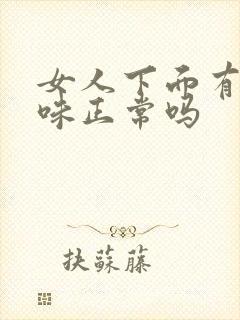 女人下面有
味正常吗
扶蘇藤